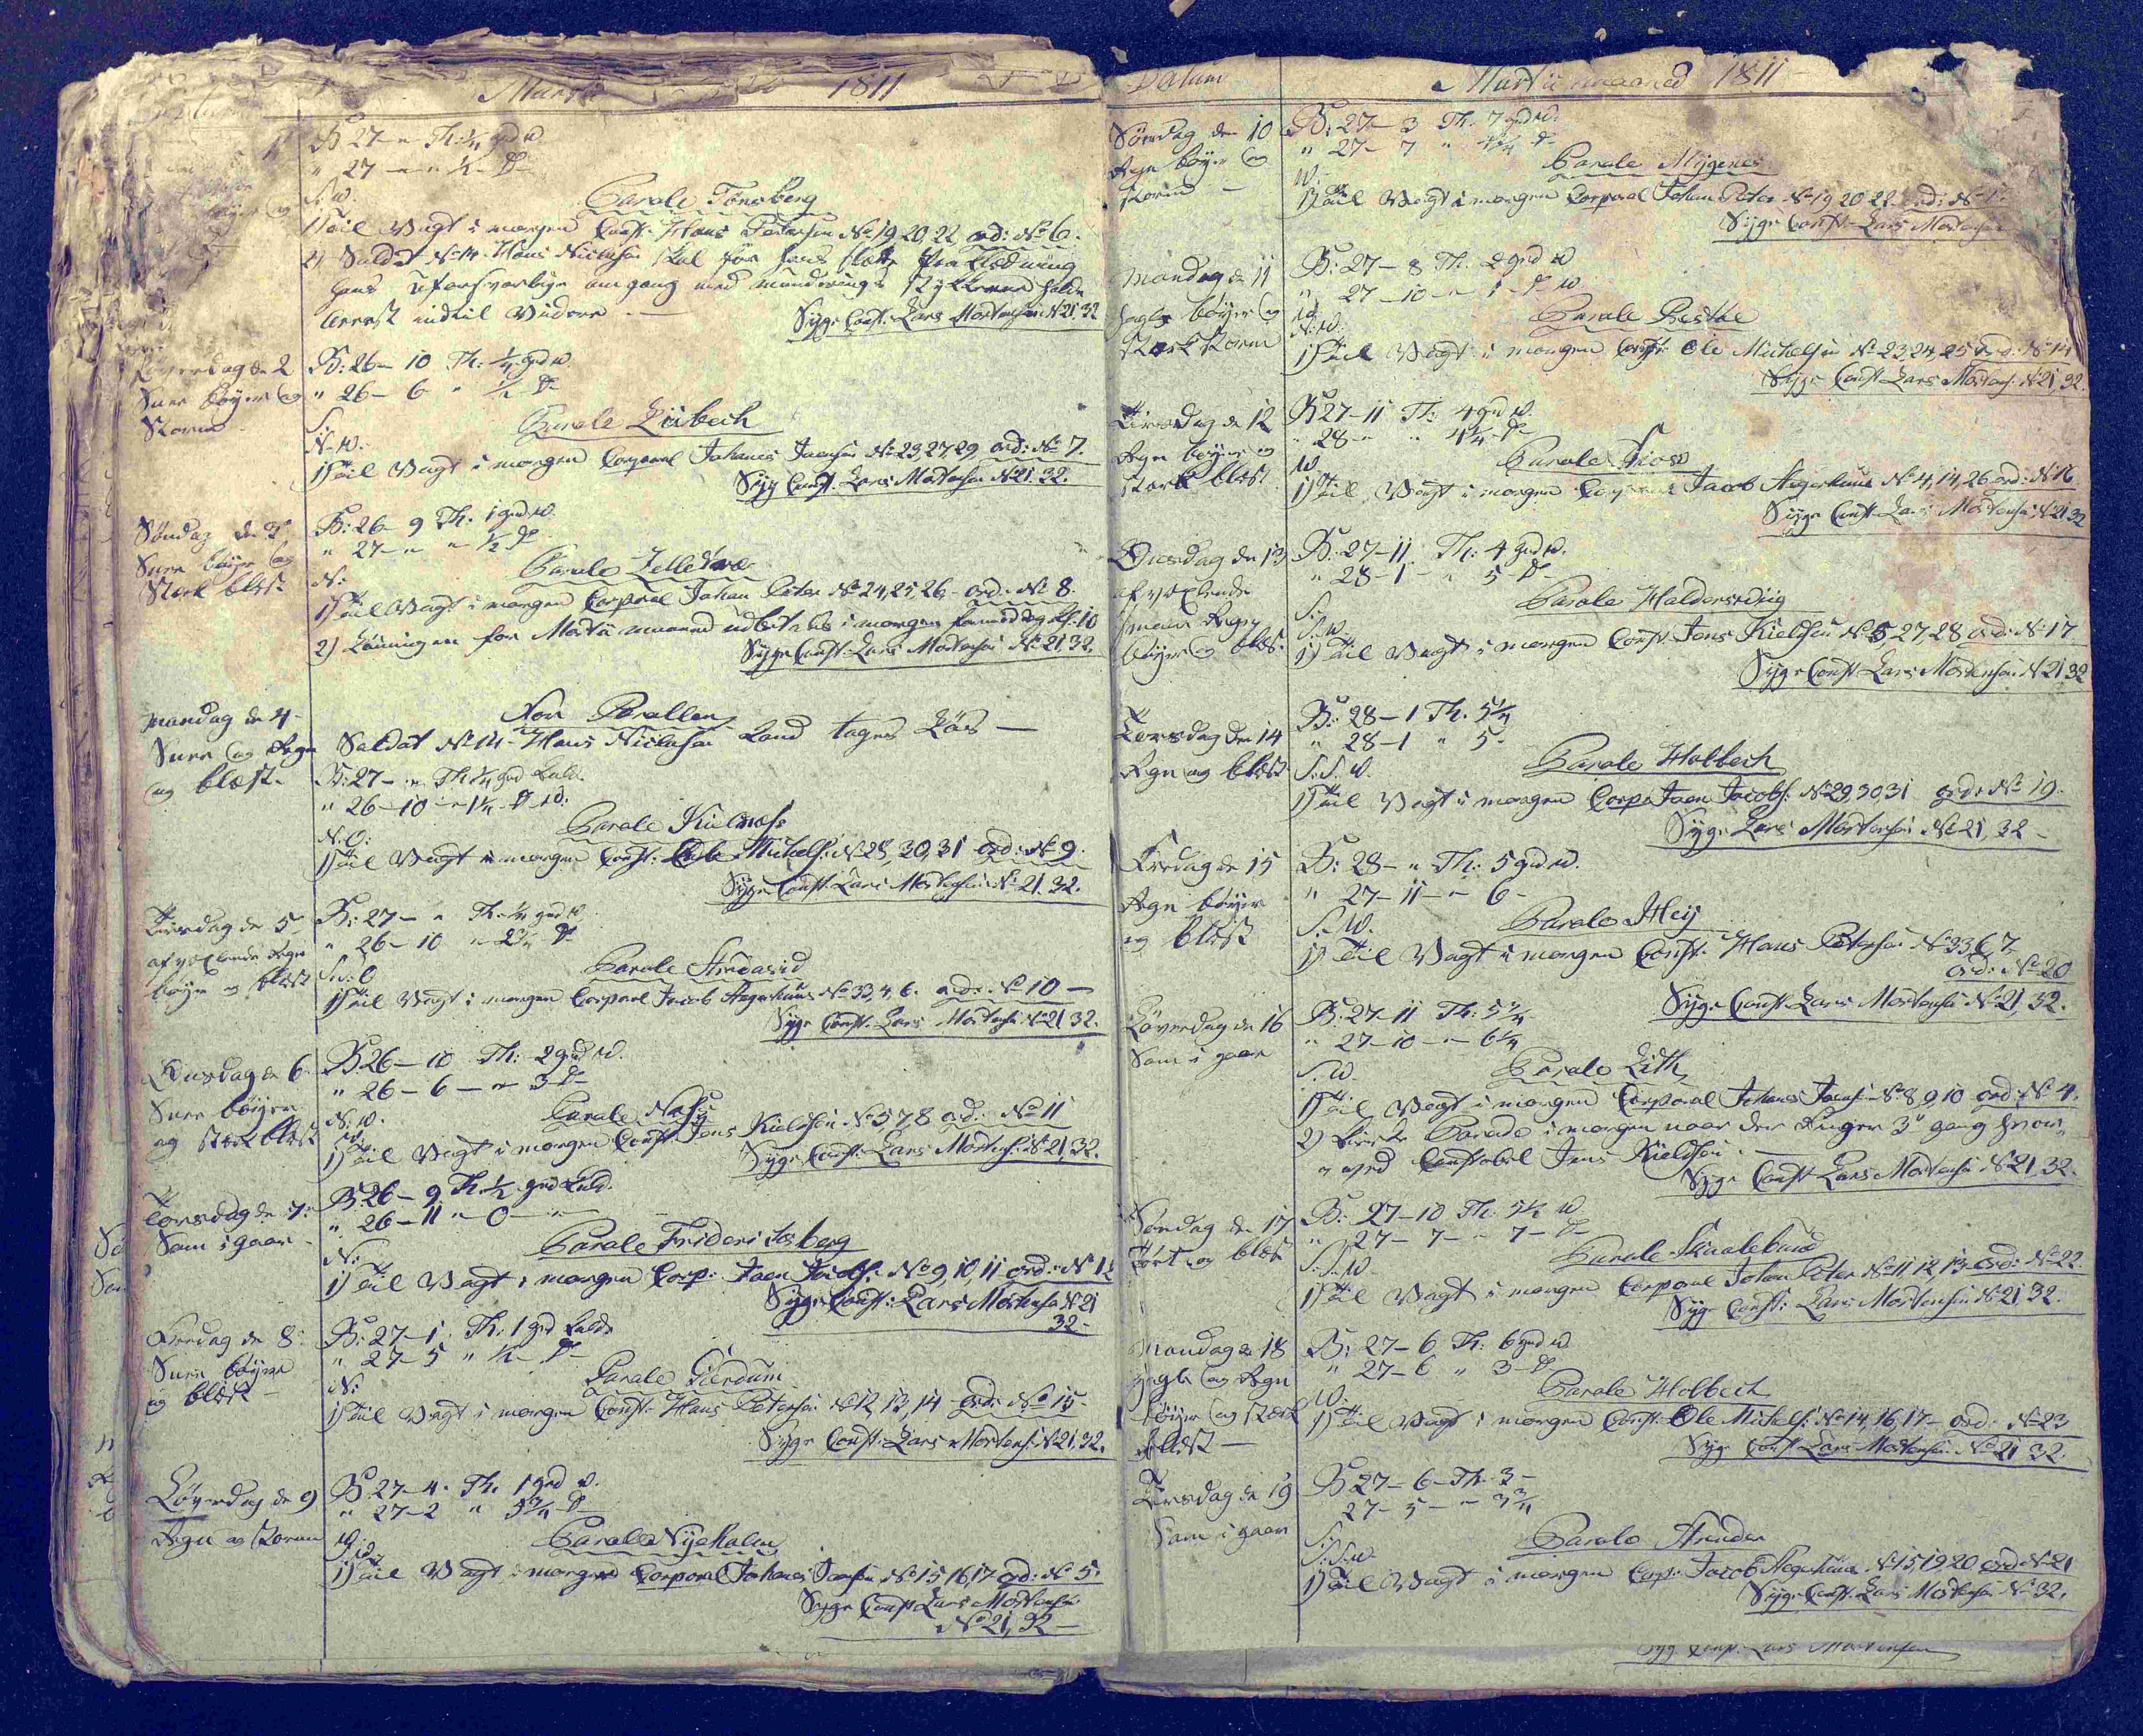 Martii 1811
1
B 27 - " Th: 1/4 grd w
" 27 - " - " 1/2 - Do
S.w.
Parole Tönsberg
1) Til Vagt i morgen Const: Hans Petersen No 19, 20, 22, ord: No 6.
2) Soldat No 14 Hans Niclasen skal for hans
hans uforsvarlige omgang med munderings stykkerne holde
Arrest indtil Videre. —
Syge Const: Lars Mortensen No 21, 32
Löverdag d 2
Snee böyer og
Storm
B: 26 - 10 Th: 1/4 grd w.
" 26 - 6 " 1/2 Do
N.W.
Parole Lübech
1) Til Vagt i morgen Corporal Johanes Joensen No 23, 27, 29, ord: No 7.
Syg Const: Lars Mortensen No 21. 32.
Söndag den 3
Snee böyer og
Stærk blæst
B: 26 - 9 Th. 1 grd w.
" 27 - " - " 1/2 Do
N:
Parole
1) Til Vagt i morgen Corporal Johan Peter No 24, 25, 26, - ord: No 8.
2) Lönningen for Martii maaned udbetales i morgen formiddag Kl. 10
Syge Const: Lars Mortensen No 21, 32.
Mandag de 4
Snee og Regn
og blæst.
For Parollen
Soldat No 14 - Hans Niclasen Land tages Lös —
B: 27 - " Th 1/4 grd Kuld.
" 26 - 10 - " 1 1/4 - Do w:
N.O:
Parole Kielnæss
1) Til Vagt i morgen Const: Ole Michels: No 28, 30, 31 ord: No 9.
Syge Const: Lars Mortensen No 21. 32.
Tirsdag de 5
afvexlende Regn
böyer og blæst
B: 27 - " Th. 1/4 grd w
" 26 - 10 " 2 3/4 Do
S.O
Parole
1) Til Vagt i morgen Corporal Jacob Hegerhuus No 33, 4, 6. ord: No 10 —
Syge Const: Lars Mortensen No 21 32.
Onsdag d 6
Snee böyer
og stærk blæst
B 26 - 10 Th: 2 grd w.
" 26 - 6 - " 3 Do
N.W.
Parole
1) Til Vagt i morgen Const Jens Kieldsen No 5, 7, 8 ord: No 11
Syge Const: Lars Mortens: No 21, 32.
Torsdag de 7:
Som i gaar -
B: 26 - 9 Th. 1/2 grd Kuld.
" 26 - 11 " 0 - "
N:
Parole Friderichsberg
1) Til Vagt i morgen Corp: Joen Jacobs: No 9, 10, 11 ord: No 12
Syge Const: Lars Mortensen No 21
32 -
Fredag de 8:
Snee böyer
og blæst
B: 27 - 1 Th. 1 grd Kulde
" 27 - 5 " 1/2 - Do
N:
Parole
1) Til Vagt i morgen Const: Hans Petersen No 12, 13, 14 - ord: No 15 -
Syge Const: Lars Mortens: No 21, 32.
Löverdag de 9
Regn og Storm
B. 27 - 4 - Th. 1 grd w.
" 27 - 2 " 3 3/4 Do
W.
Parole Nyeholm
1) Til Vagt i morgen Corporal Johanes Joensen No 15, 16, 17 ord: No 5.
Syge Const Lars Mortensen
No 21, 32 —
Datum Martii maaned 1811
Söndag den 10
Regn böyer og
storm —
B: 27 - 3 Th. 7 grd w.
" 27 - 7 " 4 1/4 Do
W.
Parole Mygenes
1) Til Vagt i morgen Corporal Johan Peter No 19 20 22 ord: No
Syge Const - Lars Mortensen
Mandag d 11
Hagl böyer og
stærk storm
B: 27 - 8 Th. 2 grd w
" 27 - 10 - " 1 - Do w
N.W.
Parole
1) Til Vagt i morgen Const: Ole Michelsen No 23, 24, 25 ord: No 14
Syge Const Lars Mortens: No 21, 32.
Tirsdag de 12
Regn böyer og
stærk blæst
B 27 - 11 Th: 4 grd w.
" 28 - " " 4 1/4 - Do
W
Parole
1) Til Vagt i morgen Corporal Jacob Hegerhuus No 4, 14, 26 ord: No 16
Syge Const - Lars Mortensen No 21 32
Onsdag den 13
afvexlende
smaa Regn
böyer og blæst.
B: 27 - 11. Th: 4 grd w.
" 28 - 1 - " 5 Do
S.W.
Parole
1) Til Vagt i morgen Const: Jens Kieldsen No 5, 27, 28 ord: No 17
Syge Const Lars Mortensen No 21 32
Torsdag den 14
Regn og blæst
B: 28 - 1 Th. 5 1/4
" 28 - 1 " 5 -
S.S.W.
Parole Holbech
1) Til Vagt i morgen Corp: Joen Jacobs: No 29, 30 31 ord: No 19.
Syge Lars Mortensen No 21, 32 —
Fredag de 15
Regn böyer
og blæst
B: 28 - " Th: 5 grd w.
" 27 - 11 - " 6 -
S.W.
Parole
1) Til Vagt i morgen Const: Hans Petersen No 33 6 7
ord: No 20
Syge Const: Lars Mortensen No 21, 32.
Löverdag de 16
Som i gaar
B: 27 - 11 Th: 5 3/4
" 27 - 10 - " 6 1/4
S.W.
Parole Lith
1) Til Vagt i morgen Corporal Johanes Joensen No 8 9 10 ord: No 4.
2) Kirke Parade i morgen naar der Ringer 3de gang
med Constabel Jens Kieldsen. —
Syge Const Lars Mortensen No 21, 32.
Söndag de 17
Tört og blæst
B: 27 - 10 Th. 5 1/2 w.
" 27 - 7 - " 7 - Do
S.S.W.
Parole
1) Til Vagt i morgen Corporal Johan Peter No 11 12 13 - ord: No 22.
Syge Const: Lars Mortensen No 21, 32.
Mandag d 18
Hagl og Regn
böyer og stærk
blæst —
B: 27 - 6 Th: 6 grd w.
" 27 - 6 " 3 - Do
W.
Parole Holbech
1) Til Vagt i morgen Const: Ole Michels: No 14, 16, 17 - ord: No 23
Syge Const Lars Mortensen No 21 32.
Tirsdag de 19
Som i gaar
B 27 - 6 - Th. 3 -
27 - 5 - " 3 3/4
S.S.W.
Parole
1) Til Vagt i morgen Corp: Jacob Hegerhuus No 15, 19 20 ord No 21
Syge Const: Lars Mortensen No 32.
Syg Const. Lars Mortensen